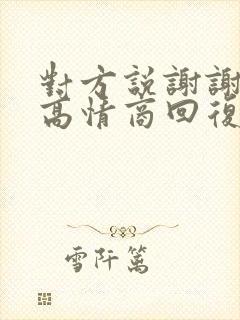 對方説謝謝
高情商回復
雪阡篱